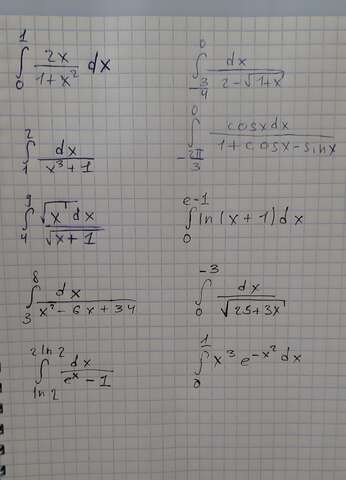 ∫₀¹ 2x/(1+x²) dx
∫_{-3/4}^0 dx/(2-√(1+x))
∫₁² dx/(x³+1)
∫_{-2π/3}^0 cosxdx/(1+cosx-sinx)
∫₄⁹ √x dx/(√x+1)
∫₀^{e-1} ln(x+1)dx
∫₃⁸ dx/(x²-6x+34)
∫₀^{-3} dx/√(25+3x)
∫_{ln2}^{2ln2} dx/(eˣ-1)
∫₀¹ x³e^{-x²}dx